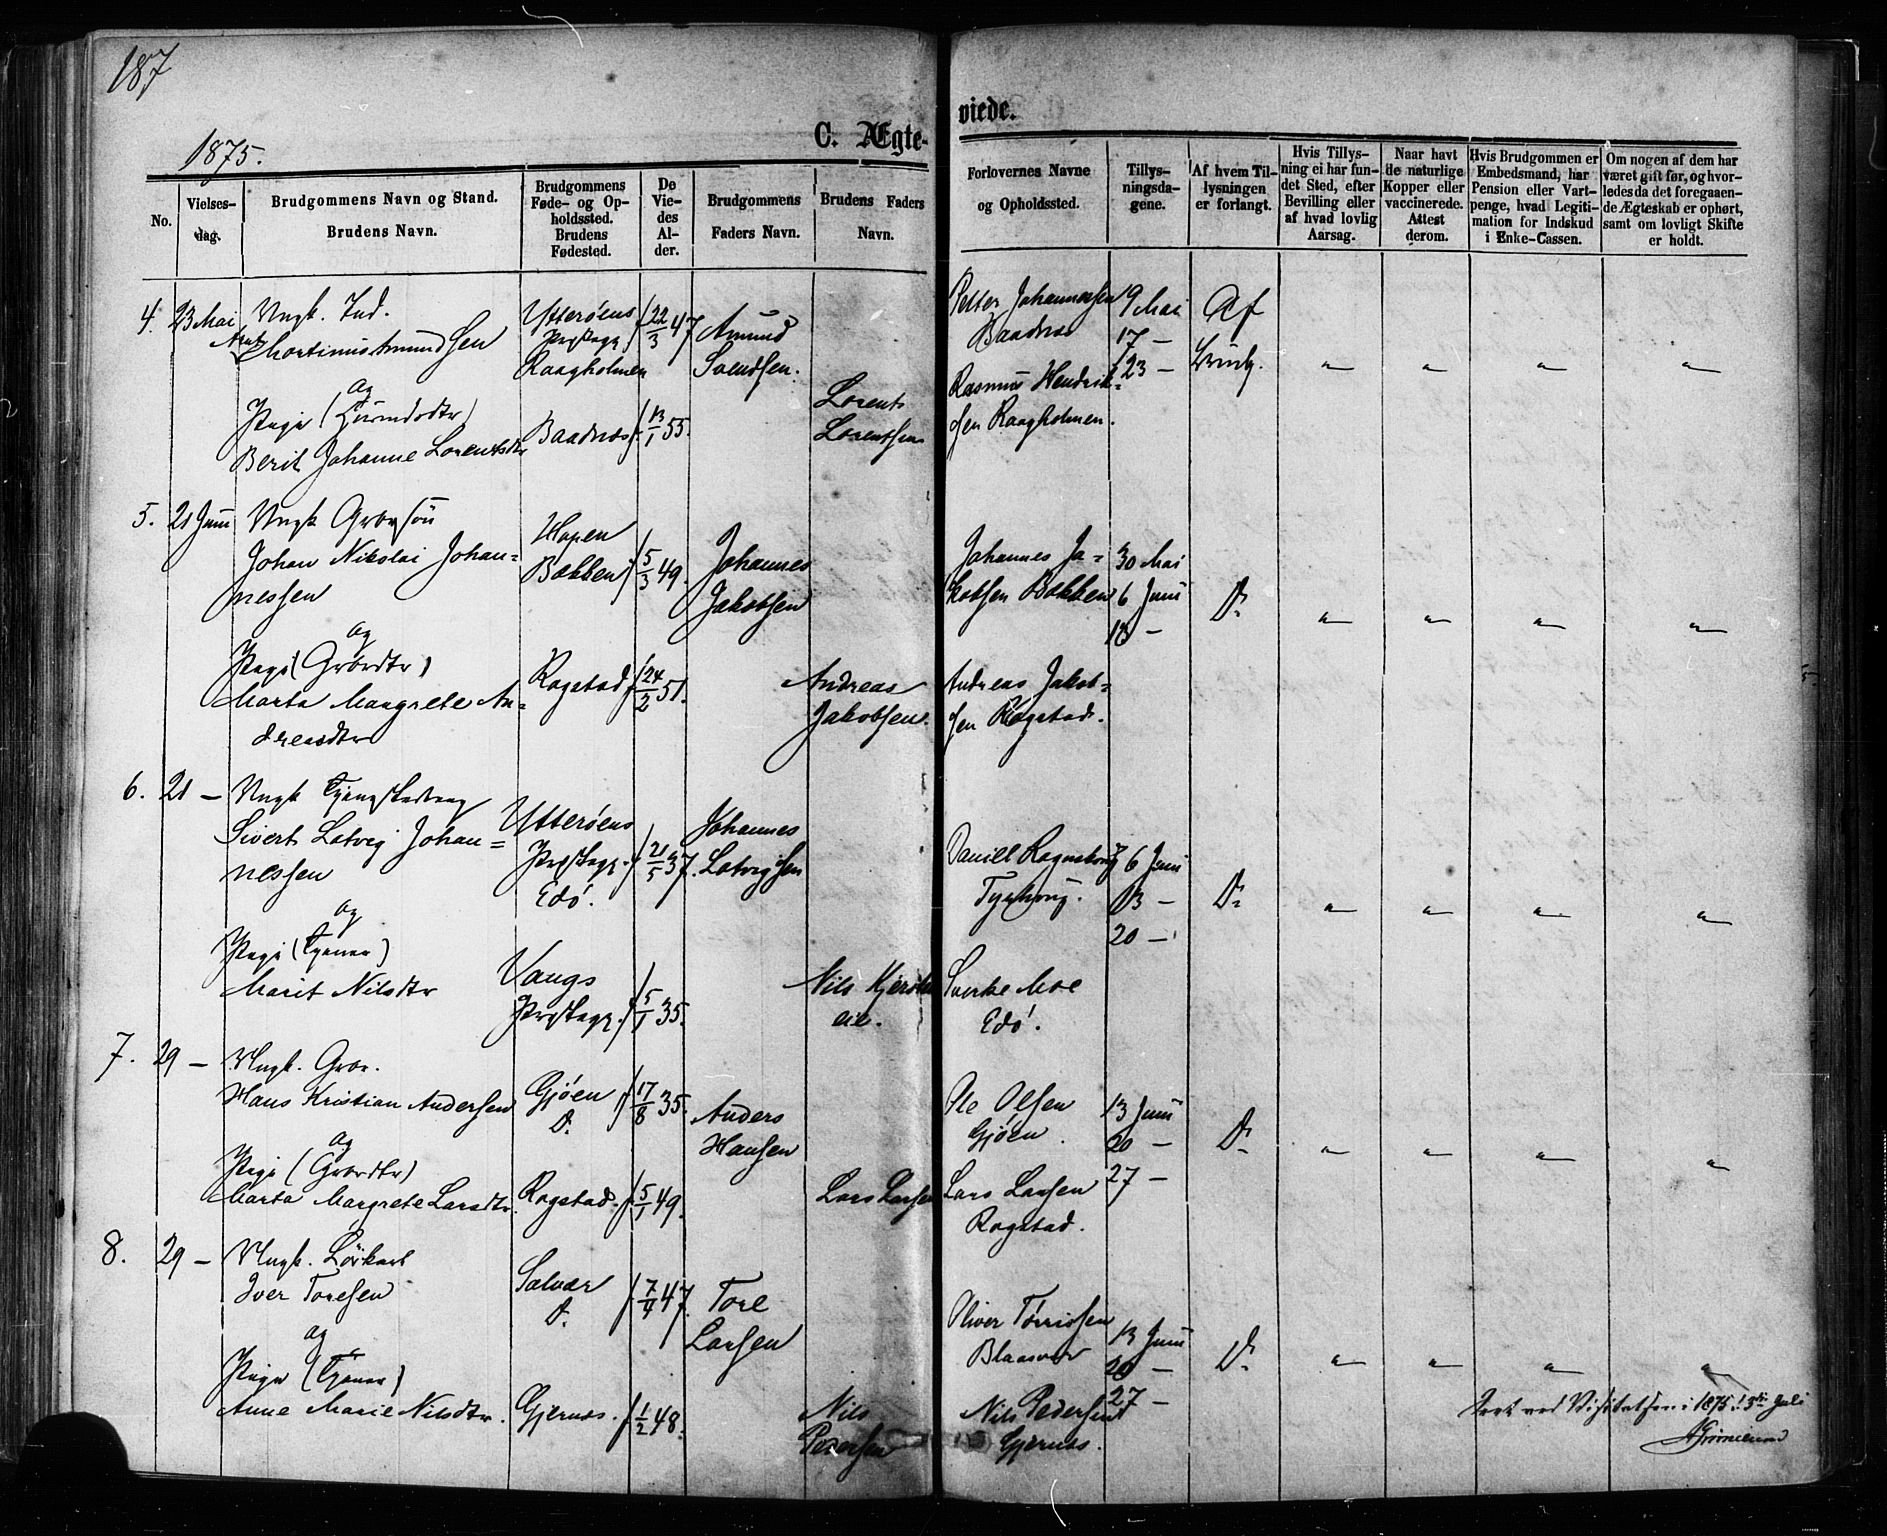 187
1875.
C. Ægte-
viede.
No.
Vielses-
dag.
Brudgommens Navn og Stand.
Brudens Navn.
Brudgommens
Føde- og Op-
holdssted.
Brudens
Fødested.
De
Vie-
des
Al-
der.
Brudgommens
Faders Navn.
Brudens Faders
Navn.
Forlovernes Navne
og Opholdssted.
Tillys-
ningsda-
gene.
Af hvem Til-
lysningen
er forlangt.
Hvis Tillys-
ning ei har fun-
det Sted, efter
Bevilling eller
af hvad lovlig
Aarsag.
Naar havt
de naturlige
Kopper eller
vaccinerede.
Attest
derom.
Hvis Brudgommen er
Embedsmand, har
Pension eller Vart-
penge, hvad Legiti-
mation for Indskud
i Enke-Cassen.
Om nogen af dem har
været gift før, og hvor-
ledes da det foregaaen-
de Ægteskab er ophørt,
samt om lovligt Skifte
er holdt.
4. 23 Mai Ungk. Ind.
Martinus Amundsen
og
Pige
Berit Johanne Lorentsdtr
Ytterøens
Præstegj.
Raagholmen
Baadnæs
f 22/3 47
f 13/1 55.
Amund
Svendsen.
Lorents
Lorentsen
Petter Johannessen
Baadnæs
Rasmus Hendrik=
sen Raagholmen.
9 Mai
17 —
23 —
Af
Brudg.
5. 21 Juni Ungk Grbrsøn
Johan Nikolai Johan=
nessen
og
Pige (Grbrdtr)
Marta Margrete An=
dreasdtr
Hopen
Bakken
Rogstad
f 5/3 49.
f 24/2 51.
Johannes
Jakobsen
Andreas
Jakobsen.
Johannes Ja=
kobsen Bakken
Andreas Jakob=
sen Rogstad.
30 Mai
6 Juni
13 —
Do
6. 21 — Ungk
Sivert Lotvig Johan=
nessen
og
Pige (Tjener)
Marit Nilsdtr
Ytterøens
Præstegj.
Edø.
Vangs
Præstegj.
f 21/5 37.
f 5/1 35.
Johannes
Lotvigsen
Nils
eie.
Daniel
Sverke Moe
Edø.
6 Juni
13 —
20 —
Do
7. 29 — Ungk. Grbr.
Hans Kristian Andersen
og
Pige (Grbrdtr)
Marta Margrete Larsdtr.
Gjøen
Do
Rogstad.
f 17/8 35.
f 5/1 49.
Anders
Hansen
Lars Larsen
Ole Olsen
Gjøen
Lars Larsen
Rogstad.
13 Juni
20 —
27 —
Do
8. 29 — Ungk. Løskarl
Iver Toresen
og
Pige (Tjener)
Anne Marie Nilsdtr.
Salvær
Do
Gjernæs.
f 7/4 47.
f 1/2 48.
Tore
Larsen
Nils
Pedersen
Oliver Tørrissen
Blaasvær
Nils Pedersen
Gjernæs.
13 Juni
20 —
27 —
Do
Seet ved Visitatsen i 1875 13de Juli